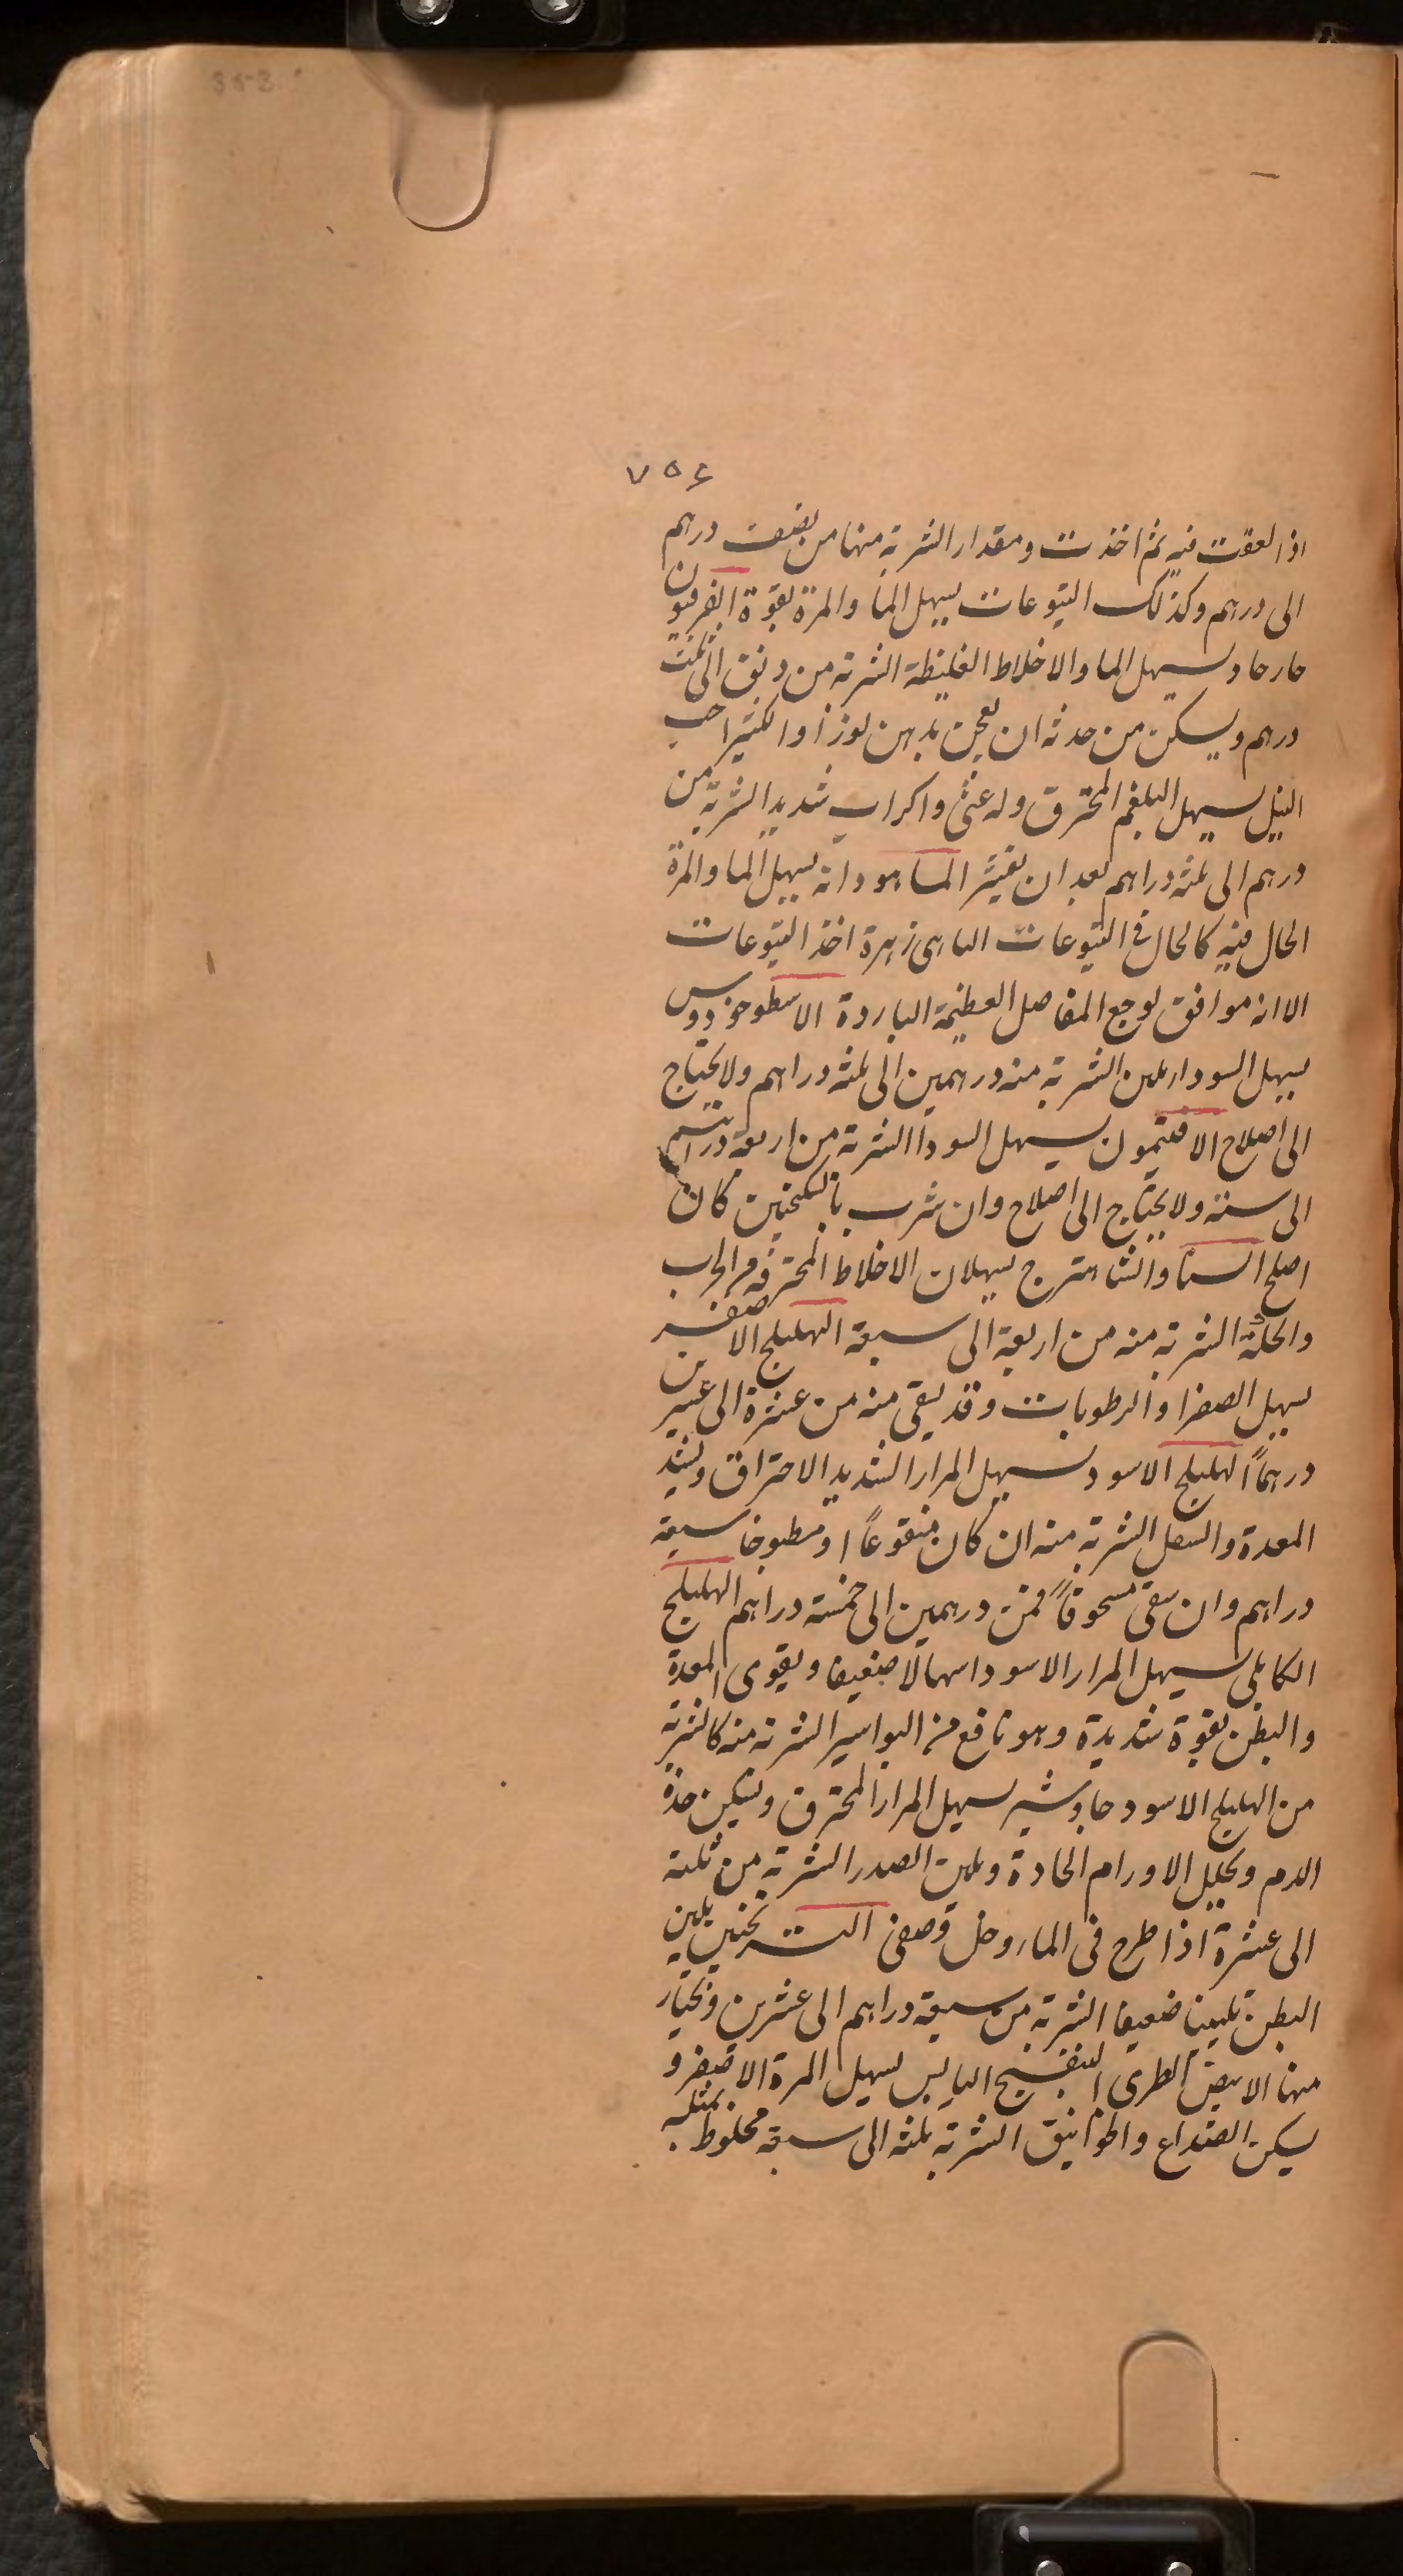 353
۷۵۴
اذا لعقت فيه ثم اخذت ومقدار الشربة منها من نصف درهم
الى درهم وكذلك اليتوعات يسهل الما والمرة بقوة الفرفيون
حار حاد يسهل الما والاخلاط الغليظة الشربة من دنق الى ثلث
درهم ويسكن من حدته ان يعجن بدهن لوز او الكثيرا حب
النيل يسهل البلغم المحترق وله غثى واكراب شديد الشربة من
درهم الى ثلثه دراهم بعد ان يقشر الماهودانه يسهل الما والمرة
الحال فيه كالحال فى اليتوعات الماهى زهرة اخذ اليتوعات
الا انه موافق لوجع المفاصل العظيمة الباردة الاسطوخودوس
يسهل السودا بلين الشربة منه درهمين الى ثلثه دراهم ولا يحتاج
الى اصلاح الافتيمون يسهل السودا الشربة من اربعة دراهم
الى ستة ولا يحتاج الى اصلاح وان شرب بالسكنجبين كان
اصلح السنا والشاهترج يسهلان الاخلاط المحترقة من الجرب
والحكة الشربة منه من اربعة الى سبعة الهليلج الاصفر
يسهل الصفرا والرطوبات وقد يسقى منه من عشرة الى عشرين
درهماً الهليلج الاسود يسهل المرار الشديد الاحتراق ويشد
المعدة والسفل الشربة منه ان كان منقوعاً او مطبوخا سبعة
دراهم وان سقى مسحوقاً فمن درهمين الى خمسة دراهم الهليلج
الكابلى يسهل المرار الاسود اسهالا ضعيفا ويقوى المعدة
والبطن بقوة شديدة وهو نافع من البواسير الشربة منه كالشربة
من الهليلج الاسود جاوشير يسهل المرار المحترق ويسكن حدة
الدم ويحلل الاورام الحادة ويلين الصدر الشربة من ثلثة
الى عشرة اذا طرح فى الما وحل وصفى الترنجبين يلين
البطن تليينا ضعيفا الشربة من سبعة دراهم الى عشرين ويختار
منها الابيض الطرى البنفسج اليابس يسهل المرة الاصفر و
يسكن الصداع والخوانيق الشربة ثلثه الى سبعة مخلوط بمثله